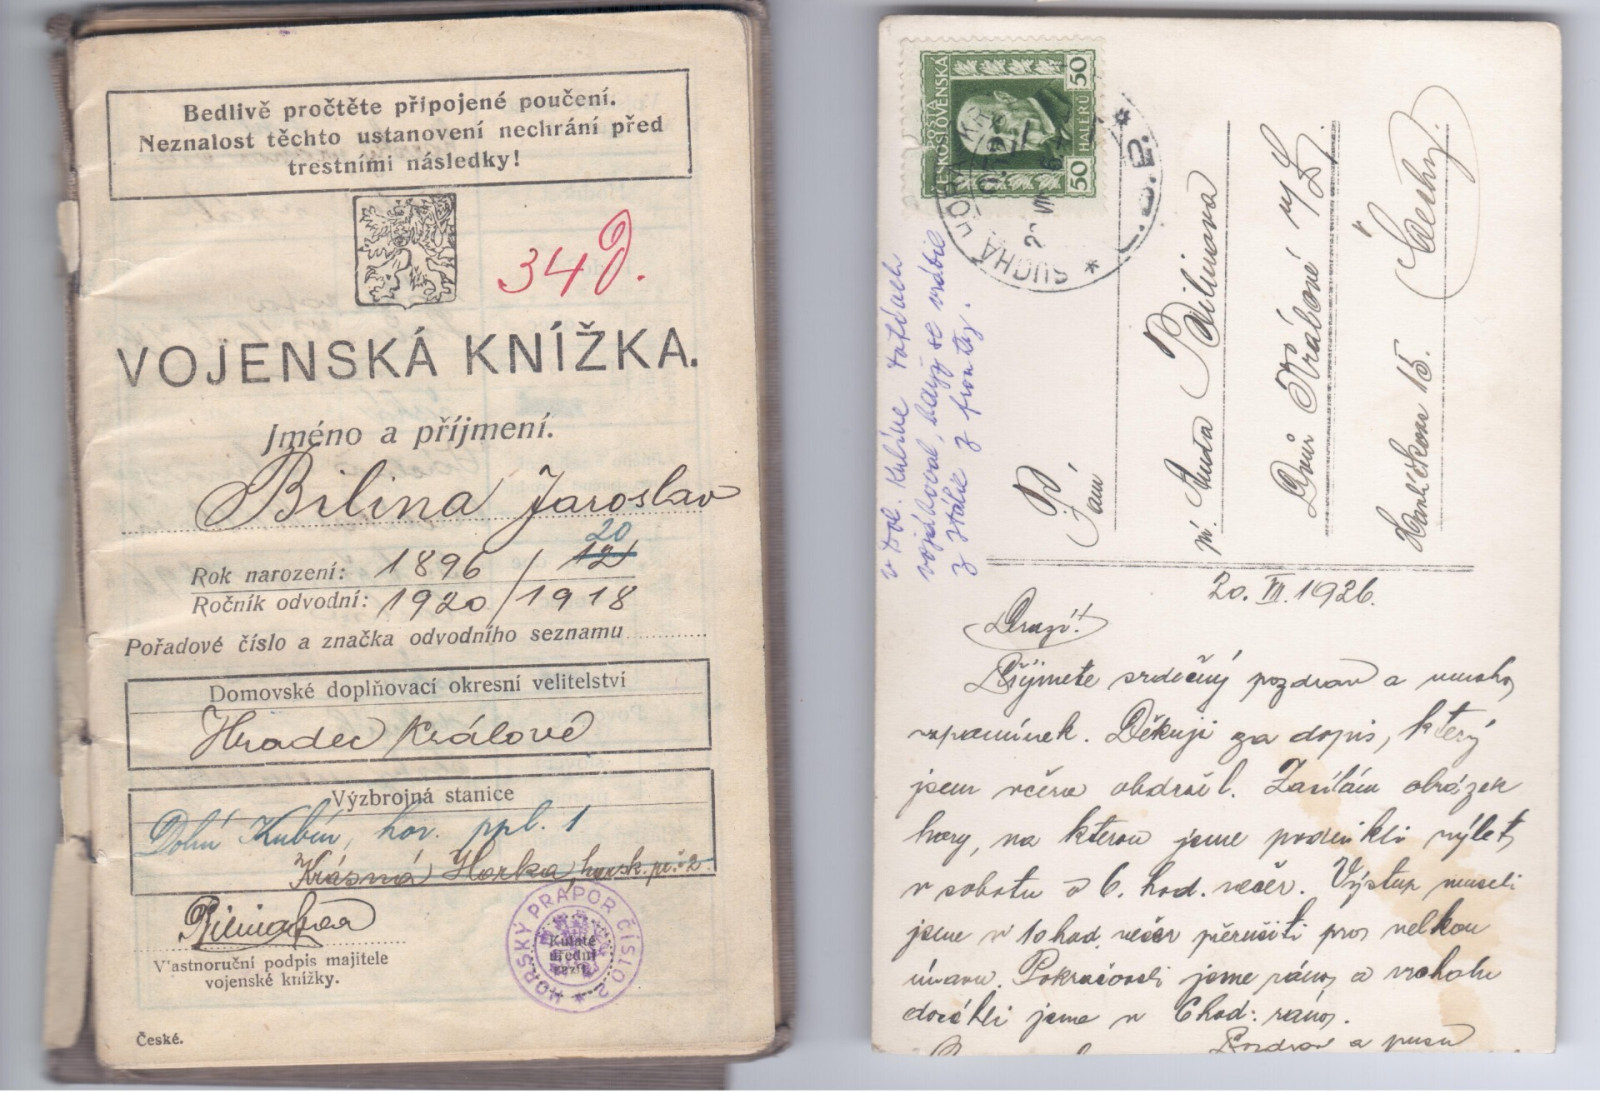 Bedlivě pročtěte připojené poučení.
Neznalost těchto ustanovení nechrání před
trestními následky!
34
VOJENSKÁ KNÍŽKA.
Jméno a příjmení.
Bilina Jaroslav
20
Rok narození: 1896 / 12
Ročník odvodní: 1920 / 1918
Pořadové číslo a značka odvodního seznamu
Domovské doplňovací okresní velitelství
Hradec Králové
Výzbrojná stanice
Dolní Kubín, hor. ppl. 1
Krásná Horka horsk. pr. 2
Vlastnoruční podpis majitele
vojenské knížky.
HORSKÝ PRAPOR ČÍSLO 2
Kulaté
úřední
České.
ČESKOSLOVENSKÁ
POŠTA
50 HALÉŘŮ 50
SUCHÁ HORA
v Dol. Kubíne
vojákoval, když se vrátil
z Itálie z fronty.
Paní
Bilinova
Dvůr Králové n/L
Havlíčkova 15. Čechy.
20. VII. 1926.
Drazí!
Přijmete srdečný pozdrav a mnoho
vzpomínek. Děkuji za dopis, který
jsem včera obdržel. Zasílám obrázek
hory, na kterou jsme podnikli výlet
v sobotu o 6. hod. večer. Výstup museli
jsme v 10 hod. večer přerušiti pro velkou
únavu. Pokračovali jsme ráno a vrcholu
docíhli jsme v 6 hod: ráno.
Pozdrav a pusu